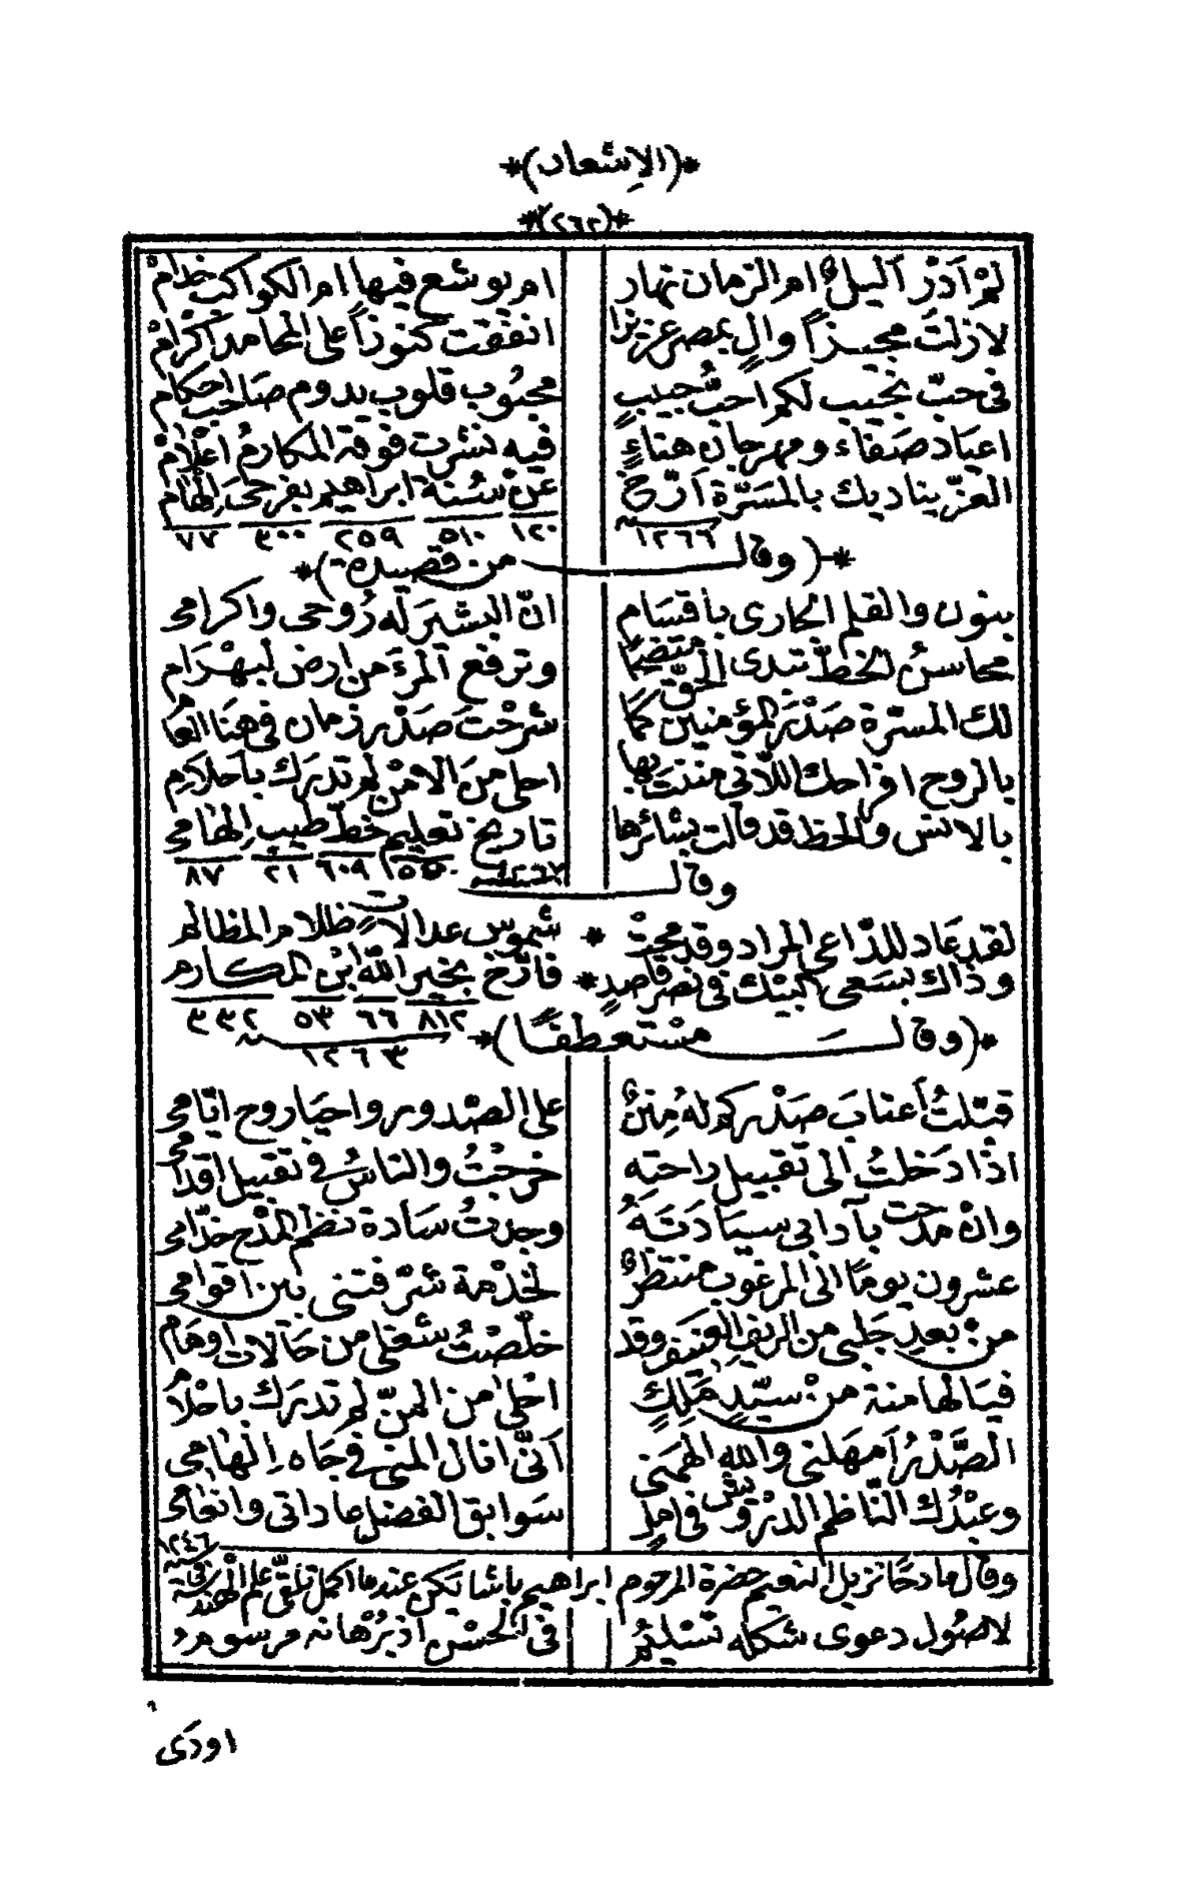 *(الإسعاد)*
*(٢٦٢)*
لم أدر الليل ام الزمان نهار ام يوشع فيها ام الكواكب خدام
لازلت مجيذاً وال بمصر عزيزا انفقت كنوزاً على المحامد اكرام
في حب نجيب لكم احب حبيب محبوب قلوب يدوم صاحب احكام
اعياد صفاء ومهرجان هناء فيه نشرت فوق المكارم اعلام
العز يناديك بالمسرة أرخ عن سنة ابراهيم بفرحي الهام
١٢٦٦ ١٢٠ ٥١٠ ٢٥٩ ٣٠٠ ٧٧
*(وقال من قصيدة)*
بنون والقلم الجارى باقسام انّ البشير له روحى واكرامى
محاسنُ الخطّ تبدى الحقّ منتضيًا وترفع المرءَ من ارض لبهرام
لك المسرّة صدر المؤمنين كما شرحت صدر زمان في هنا العام
بالروح افراحك اللاتى مننت بها احلى من الامن لم تدرك باحلام
بالانس والحظ قد قالت بشائرها تاريخ تعليم خط طيب الهامى
١٢٦٧ ٥٥٠ ٦٠٩ ٢١ ٨٧
وقال
لقد عاد للداعى المراد وقد محت * شموس عدالات ظلام المظالم
وذاك بسعى البيك في نصر قاصد * فارّخ بخير الله ابن المكارم
٨١٢ ٦٦ ٥٣ ٣٣٢
١٢٦٣ سنة
*(وقال مستعطفًا)*
قبّلتُ أعتاب صدر كم له مننٌ على الصدور واحيا روح ايّامى
اذا دخلتُ الى تقبيل راحته خرجتُ والناسُ في تقبيل اقدامى
وان مدحت بآدابى سيادتَهُ وجدتُ سادة نظم المدح خدّامى
عشرون يومًا الى المرغوب منتظرٌ لخدمة شرّفتنى بين اقوامى
من بعد جلبى من الريف العنيف وقد خلّصتُ شغلى من حالات اوهام
فيالها منة من سيّدٍ ملكٍ احلى من المنّ لم تدرك باحلام
الصَّدْرُ أمهلنى والله الهمنى أنّى انال المنى في جاه الهامى
وعبدك الناظم الدرويش في املٍ سوابق الفضل عاداتى وانعامى
١٢٤٦ سنة
وقال مادحا نزيل النعيم حضرة المرحوم ابراهيم باشا يكن عندما اكمل تلقى علم الهندسة في
لاصول دعوى شكله تسليم في الحسن اذ برهانه مرسوم
اودى